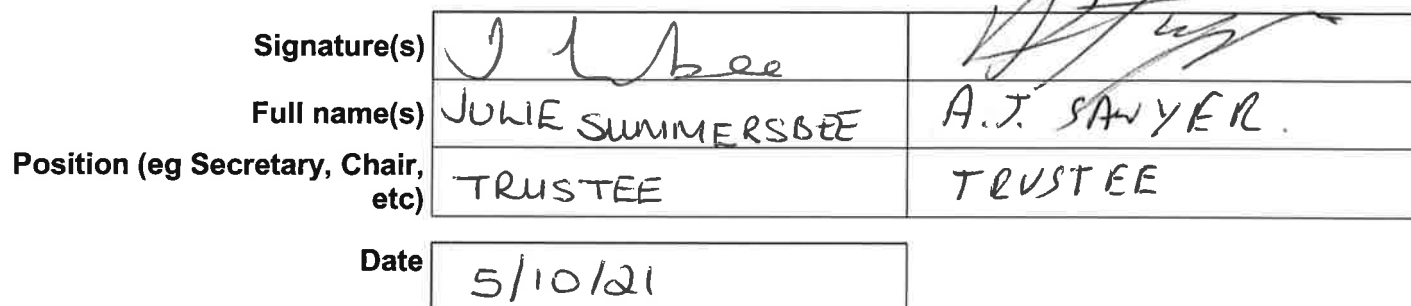 Signature(s)
Full name(s) JULIE SUMMERSBEE A.J. SAWYER.
Position (eg Secretary, Chair, etc) TRUSTEE TRUSTEE
Date 5/10/21